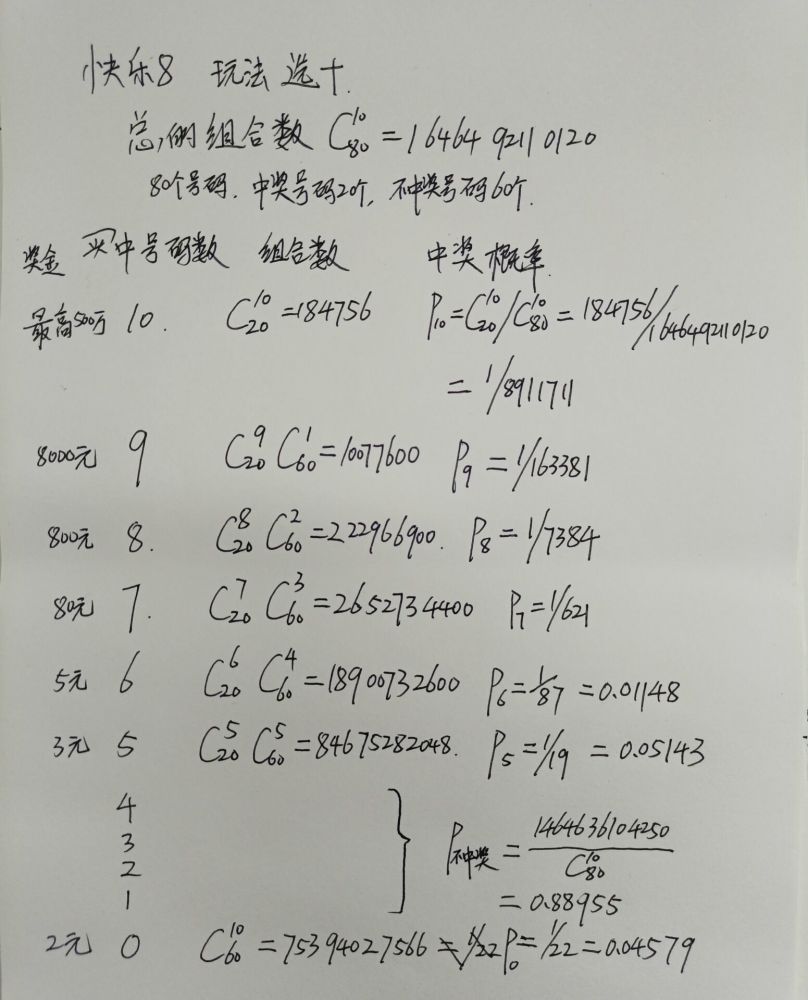 快乐8 玩法 选十.
总的组合数 C₈₀¹⁰ = 1646492110120
80个号码. 中奖号码20个, 不中奖号码60个.
奖金 买中号码数 组合数 中奖概率.
最高500万 10. C₂₀¹⁰ = 184756 P₁₀ = C₂₀¹⁰/C₈₀¹⁰ = 184756/1646492110120
= 1/8911711
8000元 9 C₂₀⁹ C₆₀¹ = 10077600 P₉ = 1/163381
800元 8. C₂₀⁸ C₆₀² = 222966900. P₈ = 1/7384
80元 7. C₂₀⁷ C₆₀³ = 2652734400 P₇ = 1/621
5元 6 C₂₀⁶ C₆₀⁴ = 18900732600 P₆ = 1/87 = 0.01148
3元 5 C₂₀⁵ C₆₀⁵ = 84675282048. P₅ = 1/19 = 0.05143
4
3
2
1
P不中奖 = 1464636104250/C₈₀¹⁰
= 0.88955
2元 0 C₆₀¹⁰ = 75394027566 = 1/22 P₀ = 1/22 = 0.04579